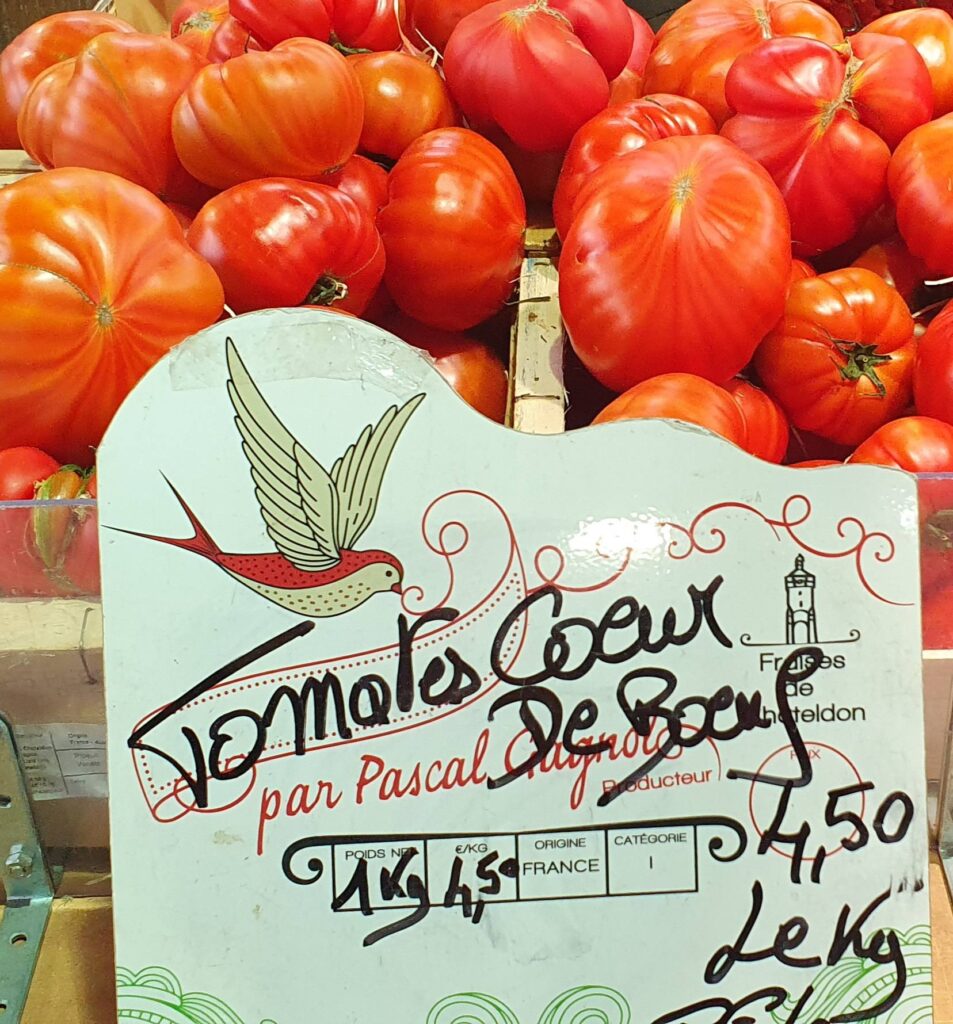 Tomates Coeur
De Boeuf
Fraises
de
Châteldon
par Pascal Gagnol
Producteur
PRIX
4,50
Le Kg
POIDS NET €/KG ORIGINE CATÉGORIE
1 Kg 4,50 FRANCE I